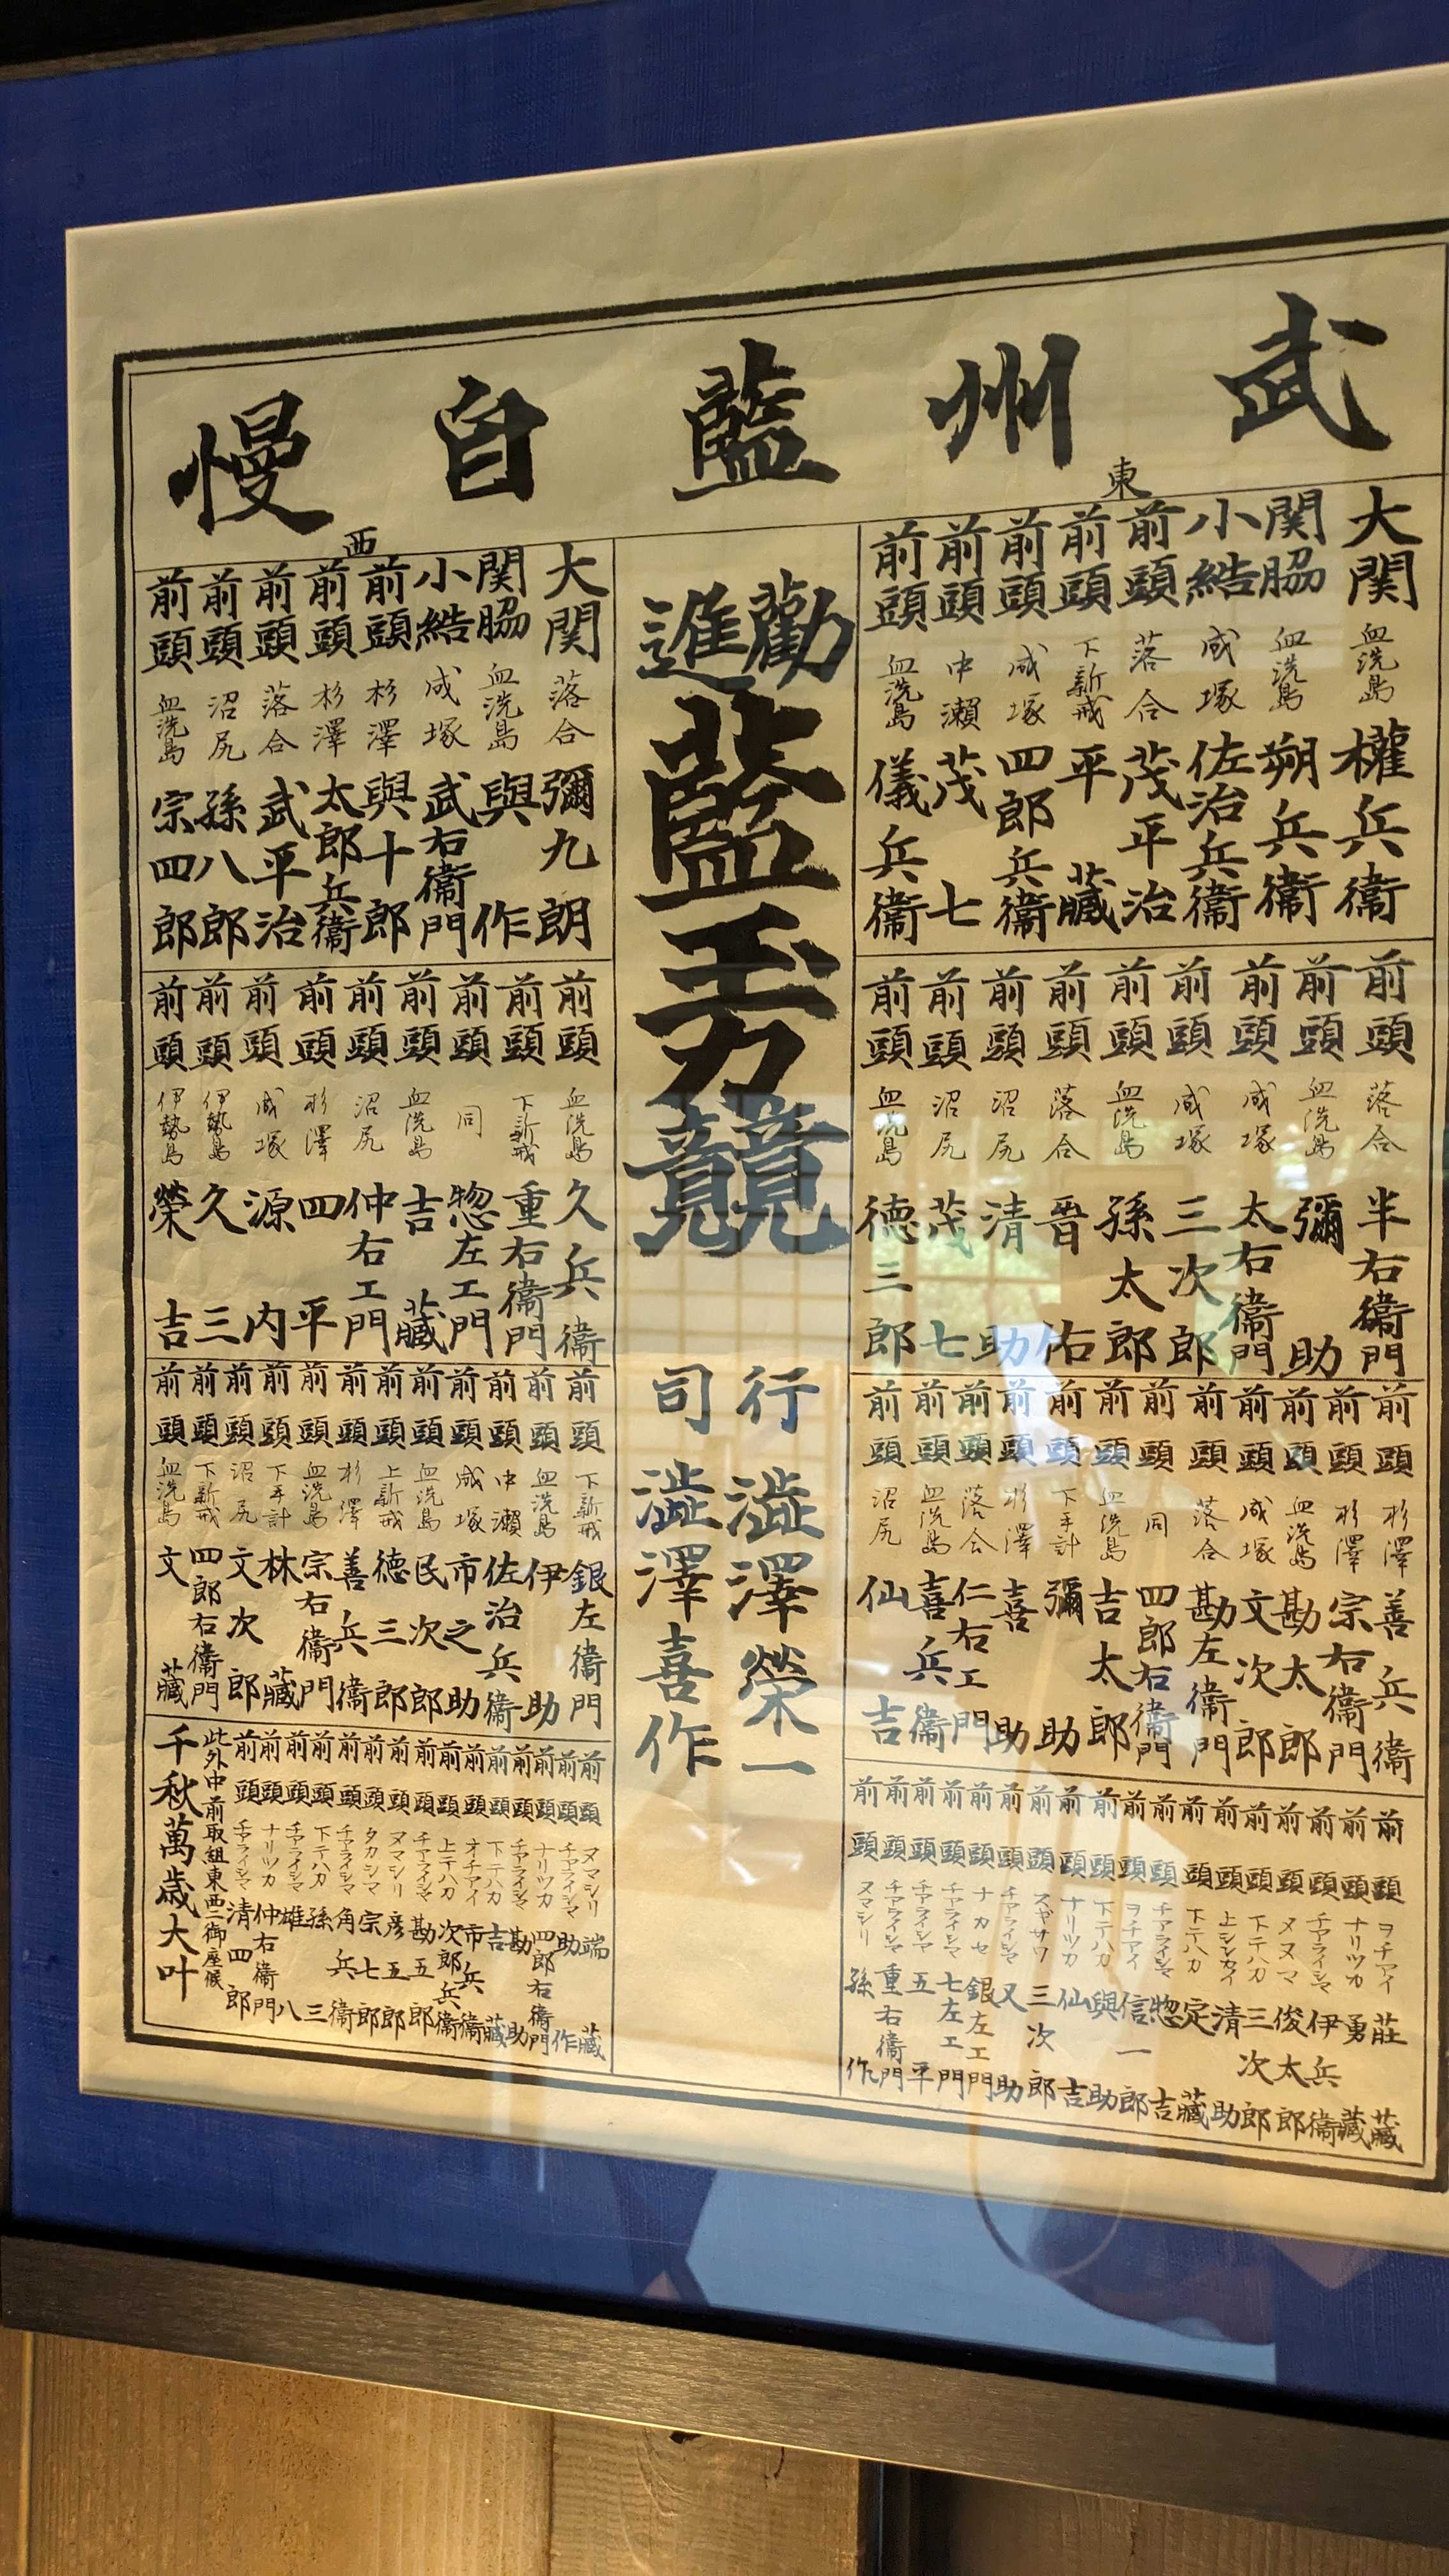 武州藍自慢
東
大関 血洗島 権兵衞
関脇 血洗島 朔兵衞
小結 成塚 佐治兵衞
前頭 落合 茂平治
前頭 下新戒 平藏
前頭 成塚 四郎兵衞
前頭 中瀬 茂七
前頭 血洗島 儀兵衞
前頭 落合 半右衞門
前頭 血洗島 彌助
前頭 成塚 太右衞門
前頭 成塚 三次郎
前頭 血洗島 孫太郎
前頭 落合 晋佑
前頭 沼尻 清助
前頭 沼尻 茂七
前頭 血洗島 徳三郎
前頭 杉澤 善兵衞
前頭 杉澤 宗右衞門
前頭 血洗島 勘太郎
前頭 成塚 文次郎
前頭 落合 勘左衞門
前頭 同 四郎右衞門
前頭 血洗島 吉太郎
前頭 下手計 彌助
前頭 杉澤 喜助
前頭 落合 仁右エ門
前頭 血洗島 喜兵衞
前頭 沼尻 仙吉
前頭 ヲチアイ 莊藏
前頭 ナリツカ 勇藏
前頭 チアライシマ 伊兵衞
前頭 ヌヌマ 俊太郎
前頭 下テハカ 三次郎
前頭 上シンカイ 清助
前頭 下テハカ 定藏
前頭 チアライシマ 惣吉
前頭 ヲチアイ 信一郎
前頭 下テハカ 與助
前頭 ナリツカ 仙吉
前頭 スギサワ 三次郎
前頭 チアライシマ 又助
前頭 ナカセ 銀左エ門
前頭 チアライシマ 七左エ門
前頭 チアライシマ 五平
前頭 チアライシマ 重右衞門
前頭 ヌマシリ 孫作
勸進
藍玉力競
行司
澁澤榮一
澁澤喜作
西
大関 落合 彌九朗
関脇 血洗島 與作
小結 成塚 武右衞門
前頭 杉澤 與十郎
前頭 杉澤 太郎兵衞
前頭 落合 武平治
前頭 沼尻 孫八郎
前頭 血洗島 宗四郎
前頭 血洗島 久兵衞
前頭 下新戒 重右衞門
前頭 同 惣左エ門
前頭 血洗島 吉藏
前頭 沼尻 仲右エ門
前頭 杉澤 四平
前頭 成塚 源内
前頭 伊勢島 久三
前頭 伊勢島 榮吉
前頭 下新戒 銀左衞門
前頭 血洗島 伊助
前頭 中瀬 佐治兵衞
前頭 成塚 市之助
前頭 血洗島 民次郎
前頭 上新戒 徳三郎
前頭 杉澤 善兵衞
前頭 血洗島 宗右衞門
前頭 下手計 林藏
前頭 沼尻 文次郎
前頭 下新戒 四郎右衞門
前頭 血洗島 文藏
前頭 ヌマシリ 端藏
前頭 チアライシマ 助作
前頭 ナリツカ 四郎右衞門
前頭 チアライシマ 勘助
前頭 下テハカ 吉藏
前頭 オチアイ 市兵衞
前頭 上テハカ 次郎兵衞
前頭 チアライシマ 勘五郎
前頭 ヌマシリ 彦五郎
前頭 タカシマ 宗七郎
前頭 チアライシマ 角兵衞
前頭 下テハカ 孫三
前頭 チアライシマ 雄八
前頭 ナリツカ 仲右衞門
前頭 チアライシマ 清四郎
此外中前取組東西ニ御座候
千秋萬歳大叶